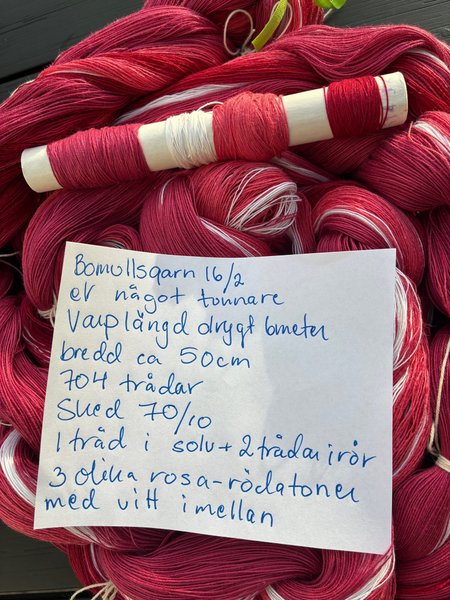 Bomullsgarn 16/2
el något tunnare
Varplängd drygt 6meter
bredd ca 50cm
704 trådar
Sked 70/10
1 tråd i solv + 2 trådar i rör
3 olika rosa-röda toner
med vitt imellan